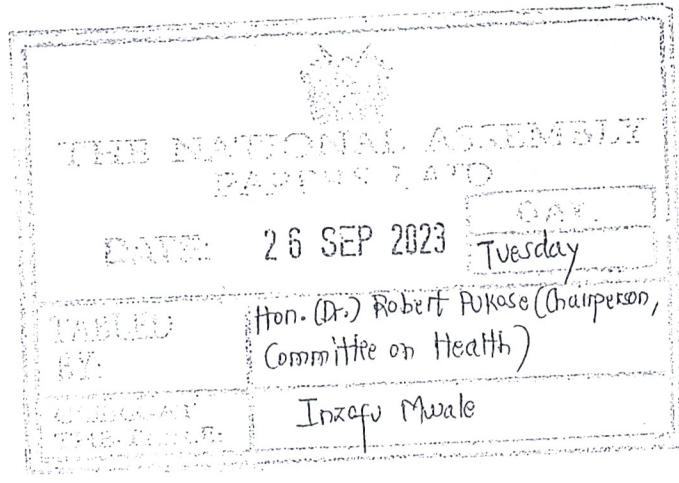 THE NATIONAL ASSEMBLY
PAPERS LAID
DATE: 26 SEP 2023
DAY.
Tuesday
TABLED
BY:
Hon. (Dr.) Robert Pukose (Chairperson,
Committee on Health)
CLERK-AT
THE-TABLE:
Inzofu Mwale